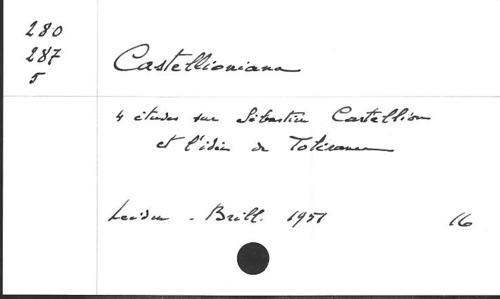 280
287
5
Castellioniana
4 études sur Sébastien Castellion
et l'idée de Tolérance
Leiden - Brill. 1951
16